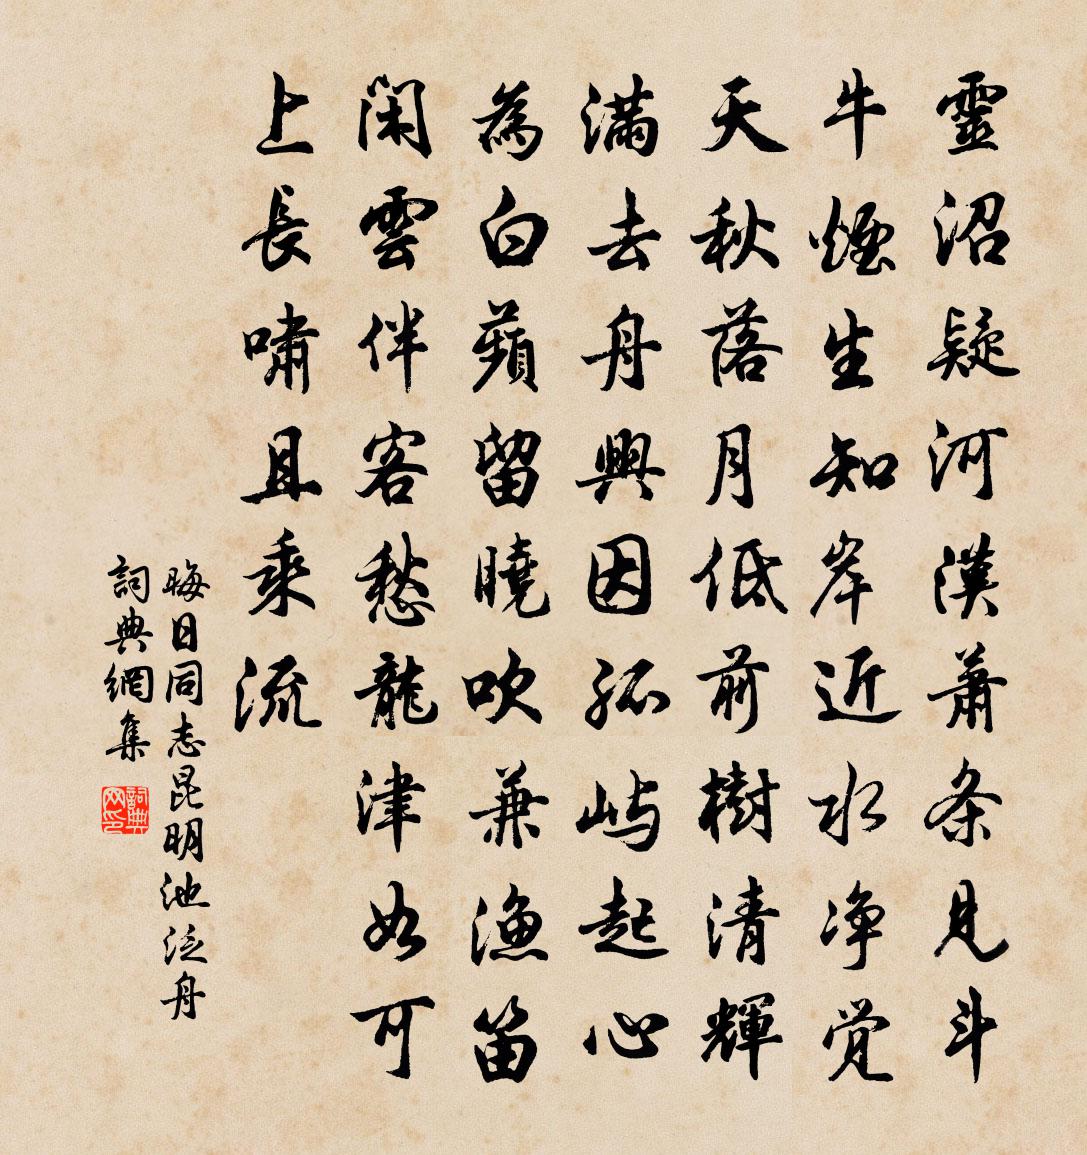 靈沼疑河漢蕭条見斗
牛煙生知岸近水净觉
天秋落月低前樹清輝
滿去舟興因孤屿起心
為白蘋留曉吹兼漁笛
閑雲伴客愁龍津如可
上長嘯且乘流
晦日同志昆明池泛舟
詞典網集
詞典网印